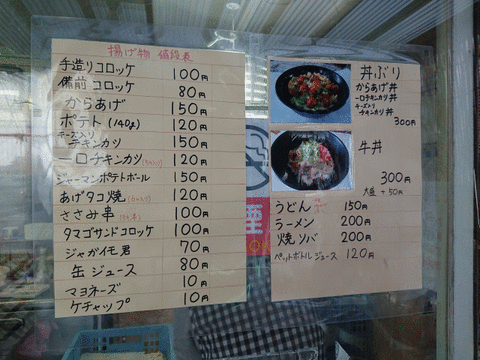 揚げ物 値段表
手造りコロッケ 100円
備前コロッケ 80円
からあげ 150円
ポテト(140g) 120円
チーズ入りチキンカツ 150円
一口チキンカツ 120円
ジャーマンポテトボール 150円
あげタコ焼 120円
ささみ串 100円
タマゴサンドコロッケ 100円
ジャガイモ君 70円
缶ジュース 80円
マヨネーズ 10円
ケチャップ 10円
丼ぶり
からあげ丼
一口チキンカツ丼
チーズ入り
チキンカツ丼
300円
牛丼
300円
大盛 +50円
うどん 150円
ラーメン 200円
焼ソバ 200円
ペットボトルジュース 120円
煙